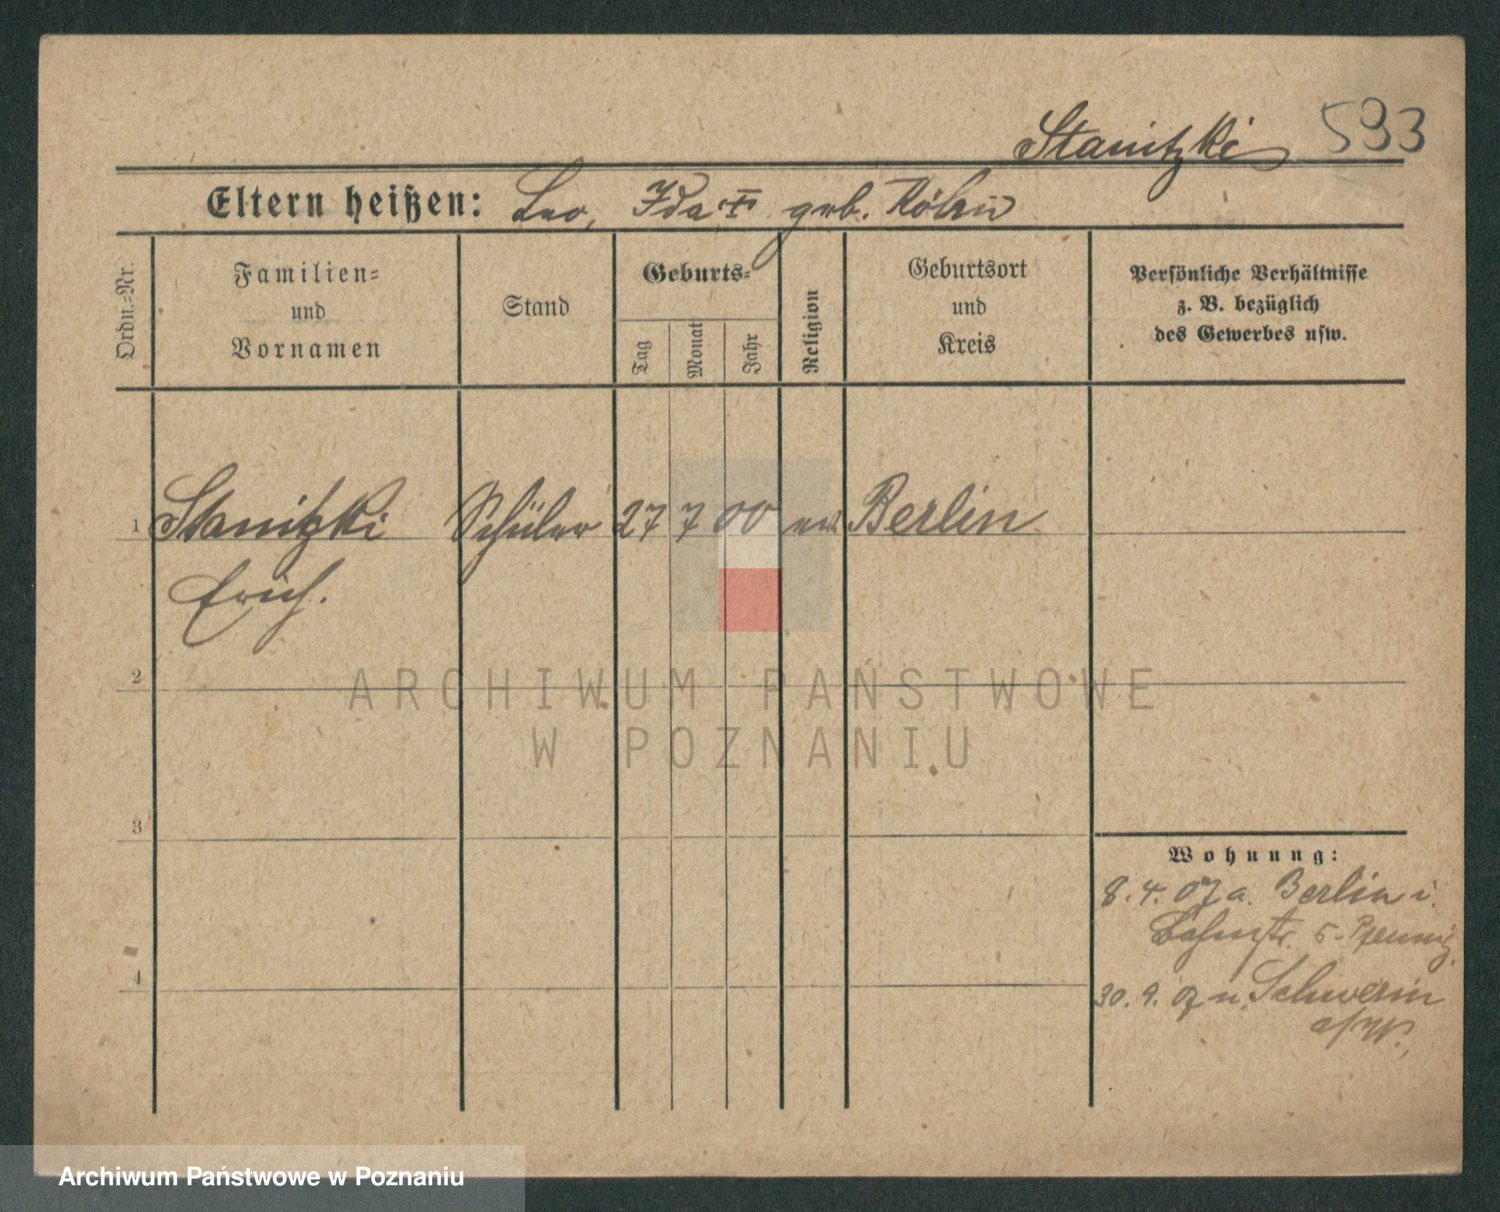 Stanitzki 593
Eltern heißen: Leo, Ida geb.
Ordn.-Nr.
Familien-
und
Vornamen
Stand
Geburts-
Tag
Monat
Jahr
Religion
Geburtsort
und
Kreis
Persönliche Verhältnisse
z. B. bezüglich
des Gewerbes usw.
1 Stanitzki Schüler 27 7 00 ev. Berlin
Erich.
2
ARCHIWUM PAŃSTWOWE
W POZNANIU
3
Wohnung:
8. 4. 07 a. Berlin i.
5
4
30. 9. 07 n. Schwerin
a/W.
Archiwum Państwowe w Poznaniu